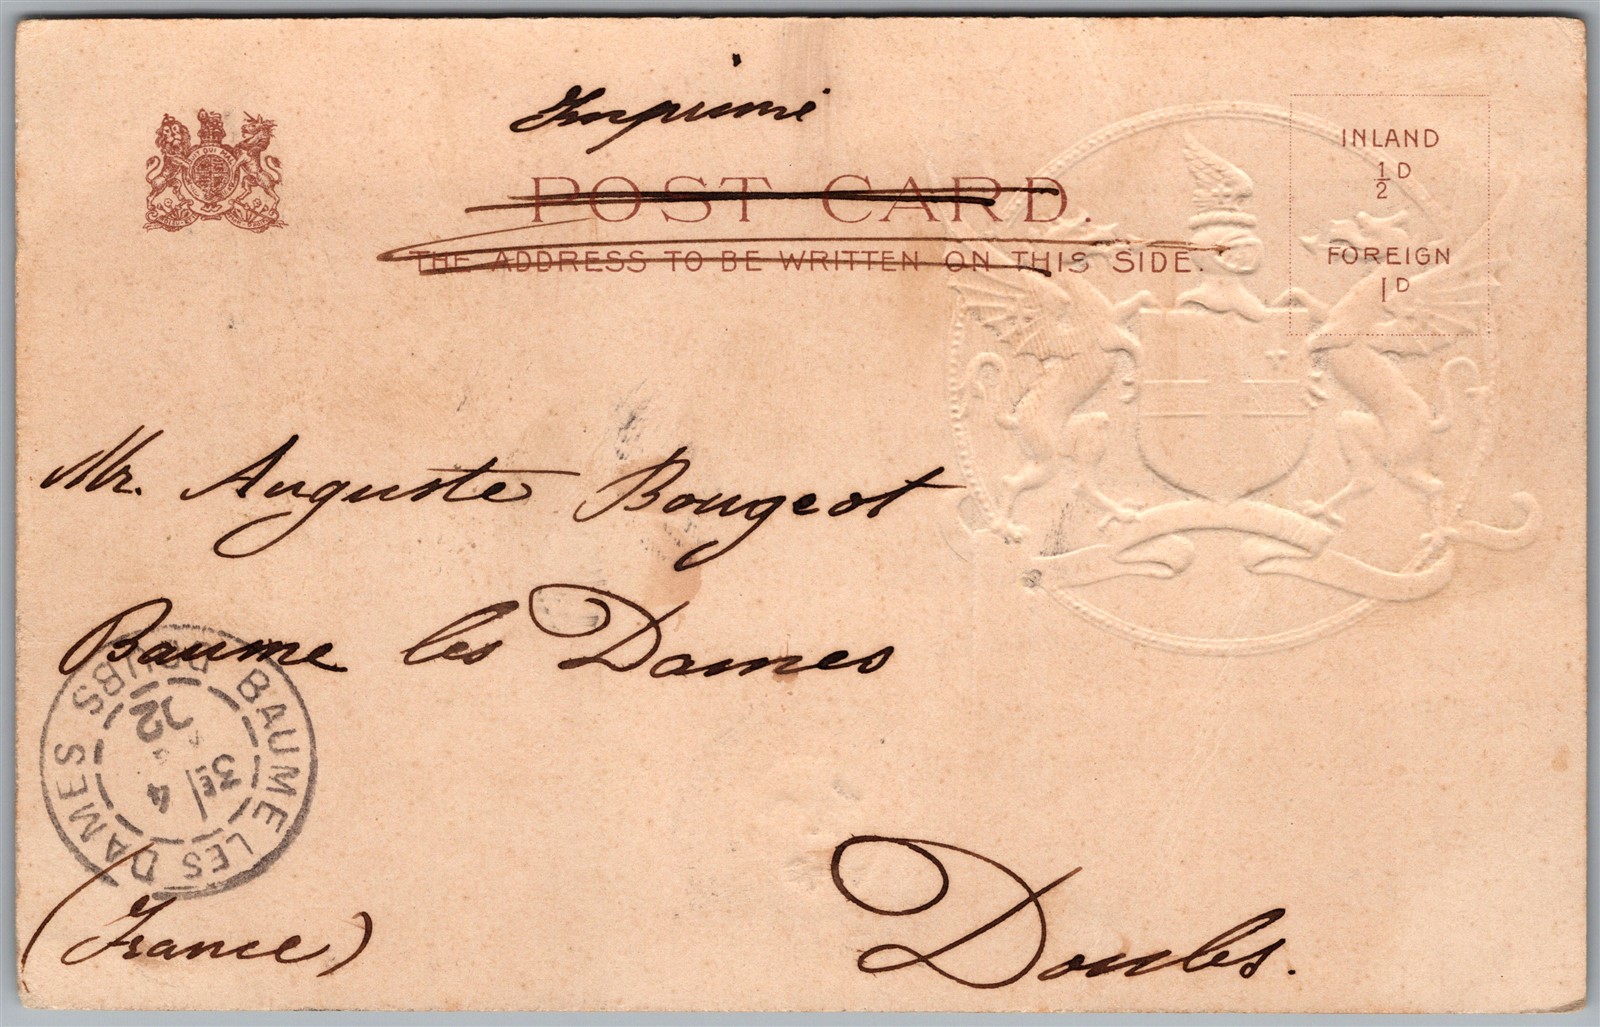 Imprimé
POST CARD.
THE ADDRESS TO BE WRITTEN ON THIS SIDE.
INLAND
½D
FOREIGN
1D
Mr. Auguste Bougeot
Baume les Dames
BAUME LES DAMES DOUBS
3E
4
02
(France)
Doubs.